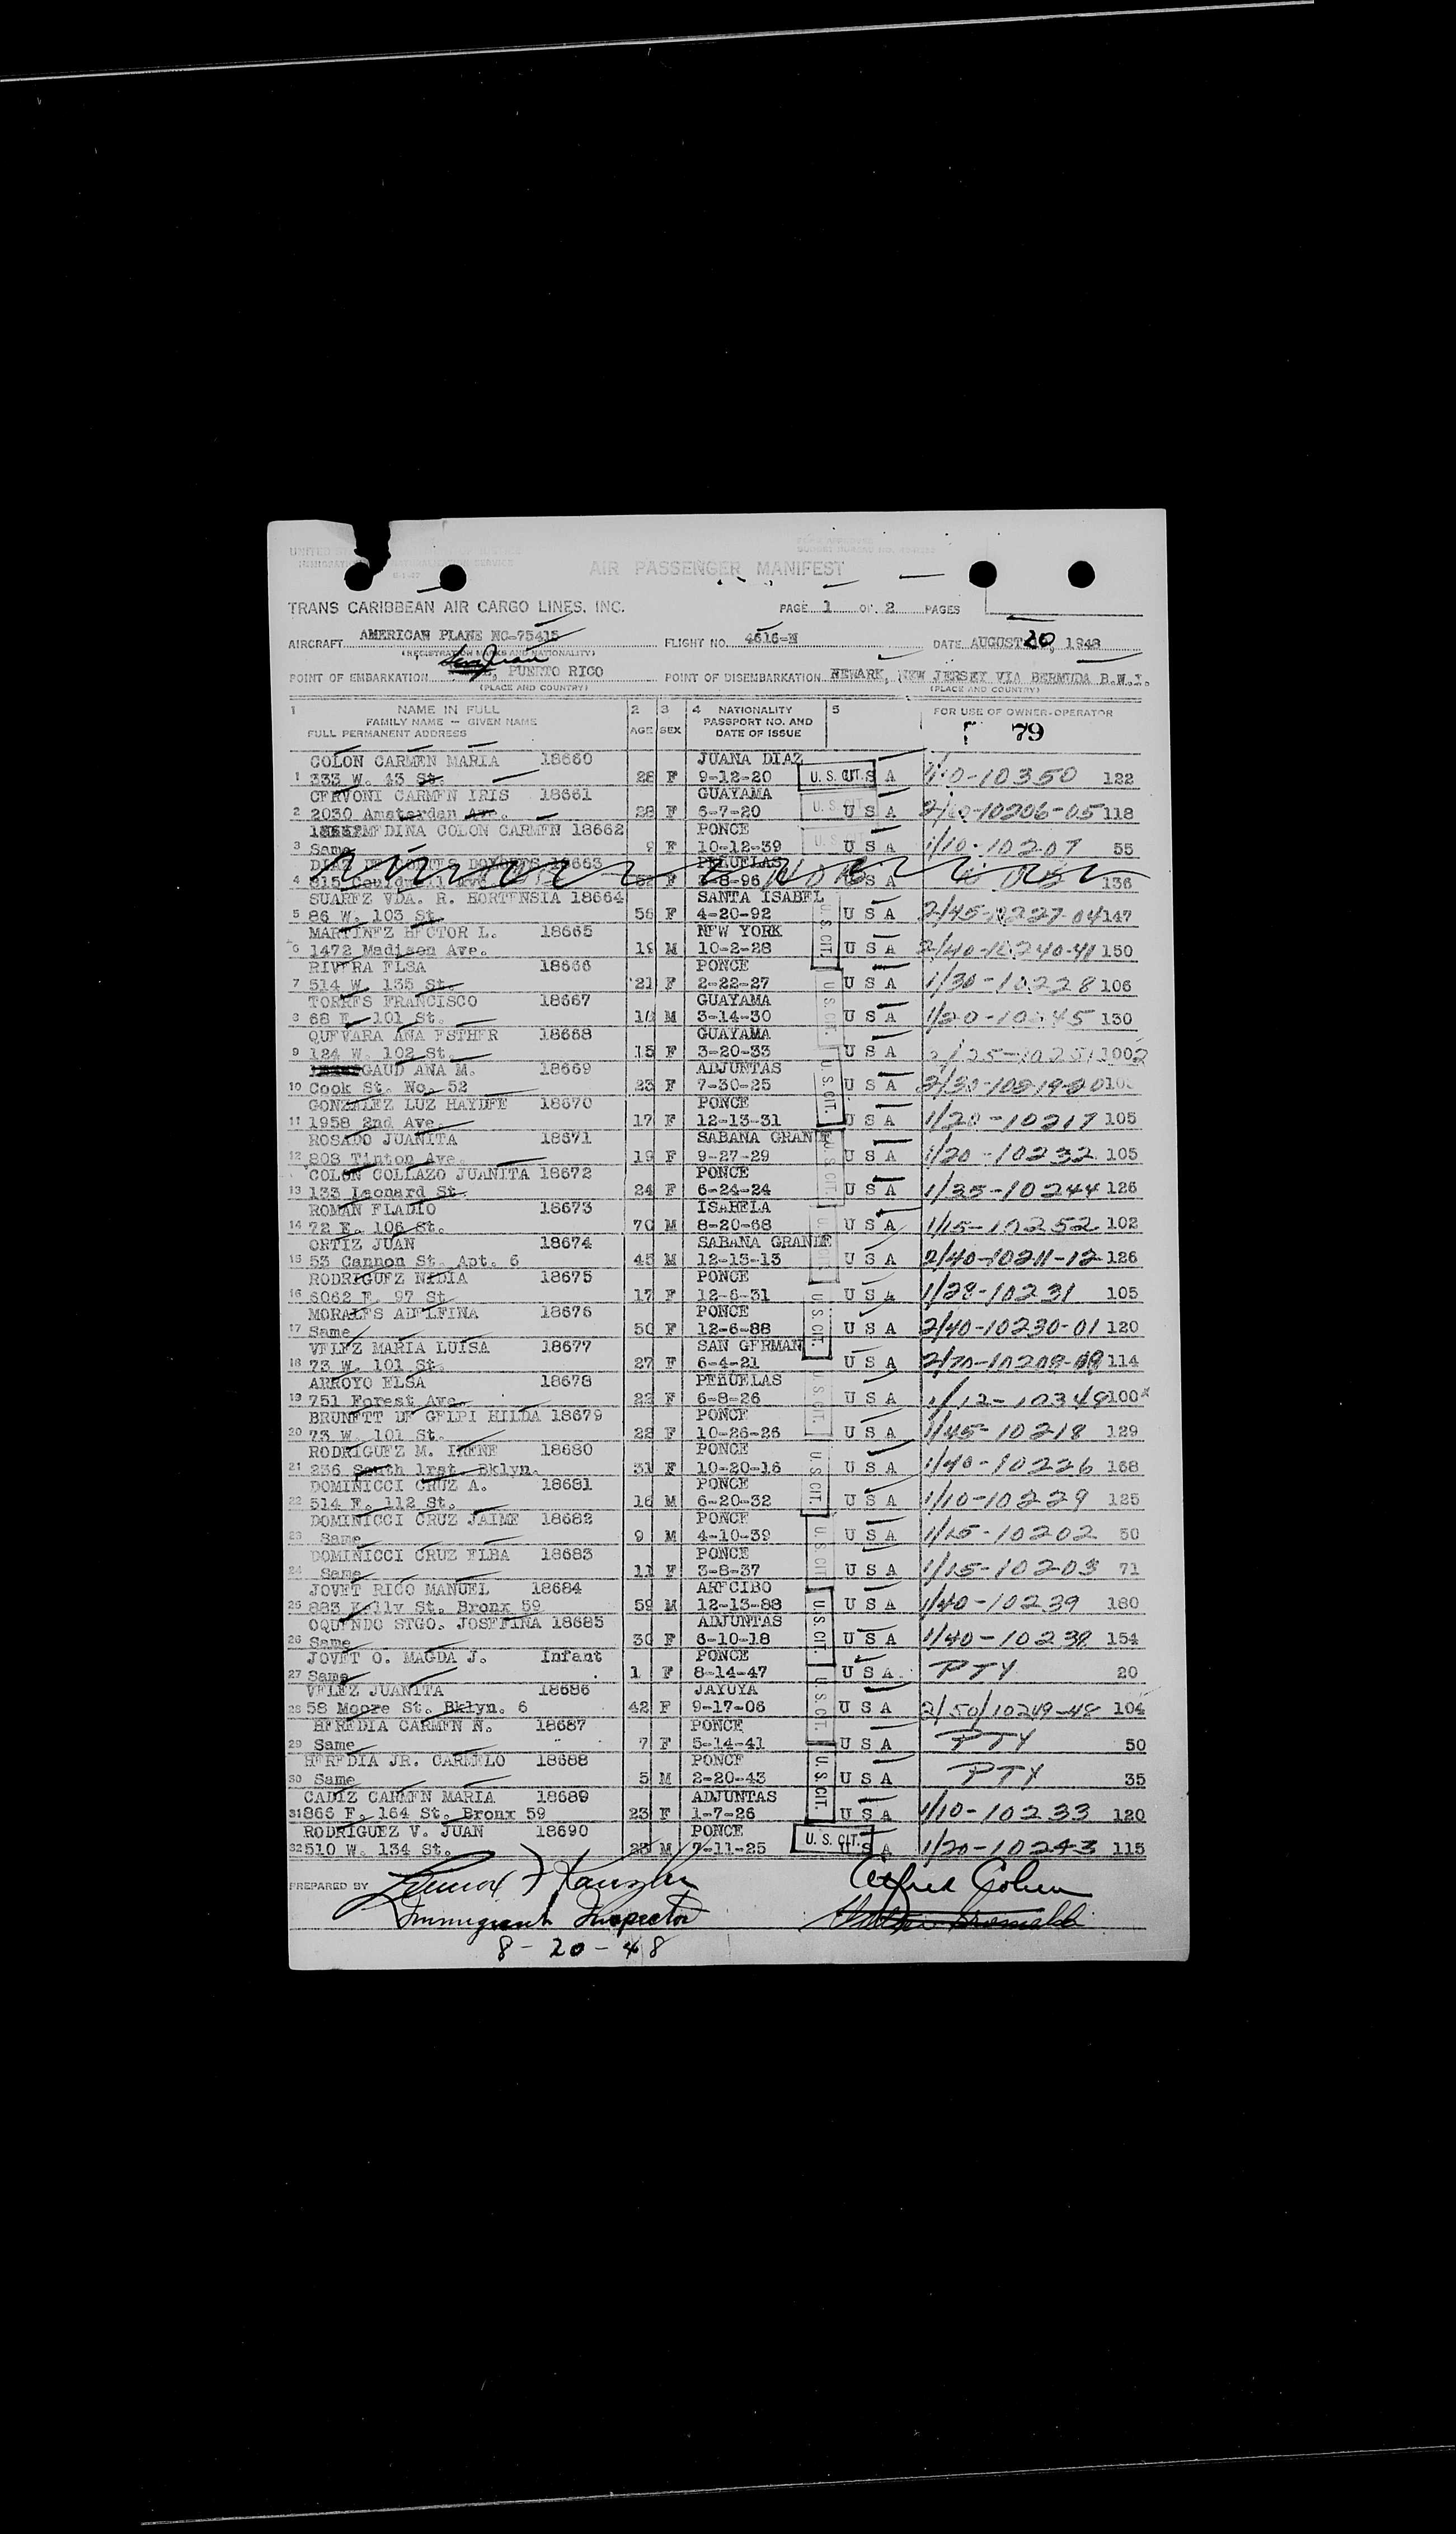 AIR PASSENGER MANIFEST
TRANS CARIBBEAN AIR CARGO LINES, INC. PAGE 1 OF 2 PAGES
AIRCRAFT AMERICAN PLANE NC-75415 FLIGHT NO. 4616-N DATE AUGUST 20, 1948
(REGISTRATION MARKS AND NATIONALITY)
POINT OF EMBARKATION San Juan, PUERTO RICO POINT OF DISEMBARKATION NEWARK, NEW JERSEY VIA BERMUDA B.W.I.
(PLACE AND COUNTRY) (PLACE AND COUNTRY)
1 NAME IN FULL 2 3 4 NATIONALITY 5 FOR USE OF OWNER-OPERATOR
FAMILY NAME -- GIVEN NAME AGE SEX PASSPORT NO. AND
FULL PERMANENT ADDRESS DATE OF ISSUE 79
COLON CARMEN MARIA 18660 JUANA DIAZ
1 333 W. 43 St. 28 F 9-12-20 U.S. CIT. U S A 10350 122
CERVONI CARMEN IRIS 18661 GUAYAMA
2 2030 Amsterdam Ave. 28 F 6-7-20 U.S. CIT. U S A 10206-05 118
MEDINA COLON CARMEN 18662 PONCE
3 Same 9 F 10-12-39 U.S. CIT. U S A 1/10-10207 55
18663 PEÑUELAS
4 F 8-96 S A 136
SUAREZ VDA. R. HORTENSIA 18664 SANTA ISABEL
5 86 W. 103 St 56 F 4-20-92 U S A 2/45-10227-04 147
MARTINEZ HECTOR L. 18665 NEW YORK
6 1472 Madison Ave. 19 M 10-2-28 U.S. CIT. U S A 2/40-10240-41 150
RIVERA ELSA 18666 PONCE
7 514 W. 135 St. 21 F 2-22-27 U S A 1/30-10228 106
TORRES FRANCISCO 18667 GUAYAMA
8 68 E. 101 St. 18 M 3-14-30 U.S. CIT. U S A 1/20-10245 130
QUEVARA ANA ESTHER 18668 GUAYAMA
9 124 W. 102 St. 15 F 3-20-33 U S A 100
GAUD ANA M. 18669 ADJUNTAS
10 Cook St. No. 52 23 F 7-30-25 U.S. CIT. U S A
GONZALEZ LUZ HAYDEE 18670 PONCE
11 1958 2nd Ave. 17 F 12-13-31 U S A 1/20-10217 105
ROSADO JUANITA 18671 SABANA GRANDE
12 808 Tinton Ave. 19 F 9-27-29 U.S. CIT. U S A 1/20-10232 105
COLON COLLAZO JUANITA 18672 PONCE
13 133 Leonard St. 24 F 6-24-24 U S A 1/35-10244 126
ROMAN ELADIO 18673 ISABELA
14 72 E. 106 St. 70 M 8-20-68 U S A 1/15-10252 102
ORTIZ JUAN 18674 SABANA GRANDE
15 53 Cannon St. Apt. 6 45 M 12-13-13 U.S. CIT. U S A 2/40-10211-12 126
RODRIGUEZ NIDIA 18675 PONCE
16 6062 E. 97 St. 17 F 12-6-31 U S A 1/28-10231 105
MORALES ADELFINA 18676 PONCE
17 Same 50 F 12-6-88 U.S. CIT. U S A 2/40-10230-01 120
VELEZ MARIA LUISA 18677 SAN GERMAN
18 73 W. 101 St. 27 F 6-4-21 U S A 114
ARROYO ELSA 18678 PEÑUELAS
19 751 Forest Ave. 22 F 6-8-26 U.S. CIT. U S A 1/12-10348 100
BRUNETT DE GELPI HILDA 18679 PONCE
20 73 W. 101 St. 28 F 10-26-26 U S A 1/45-10218 129
RODRIGUEZ M. IRENE 18680 PONCE
21 236 South 1rst. Bklyn. 31 F 10-20-16 U.S. CIT. U S A 1/40-10226 168
DOMINICCI CRUZ A. 18681 PONCE
22 514 E. 112 St. 16 M 6-20-32 U S A 1/10-10229 125
DOMINICCI CRUZ JAIME 18682 PONCE
23 Same 9 M 4-10-39 U.S. CIT U S A 1/15-10202 50
DOMINICCI CRUZ ELBA 18683 PONCE
24 Same 11 F 3-8-37 U S A 1/15-10203 71
JOVET RICO MANUEL 18684 ARECIBO
25 883 Kelly St. Bronx 59 59 M 12-13-88 U.S. CIT. U S A 1/40-10239 180
OQUENDO STGO. JOSEFINA 18685 ADJUNTAS
26 Same 30 F 6-10-18 U S A 1/40-10238 154
JOVET O. MAGDA J. Infant PONCE
27 Same 1 F 8-14-47 U S A PTY 20
VELEZ JUANITA 18686 JAYUYA
28 58 Moore St. Bklyn. 6 42 F 9-17-06 U.S. CIT. U S A 2/50/10249-48 104
HEREDIA CARMEN N. 18687 PONCE
29 Same 7 F 5-14-41 U S A PTY 50
HEREDIA JR. CARMELO 18688 PONCE
30 Same 5 M 2-20-43 U.S. CIT. U S A PTY 35
CADIZ CARMEN MARIA 18689 ADJUNTAS
31 866 E. 164 St. Bronx 59 23 F 1-7-26 U S A 1/10-10233 120
RODRIGUEZ V. JUAN 18690 PONCE
32 510 W. 134 St. 23 M 7-11-25 U.S. CIT. U S A 1/20-10243 115
PREPARED BY Alfred Cohen
Immigrant Inspector
8-20-48